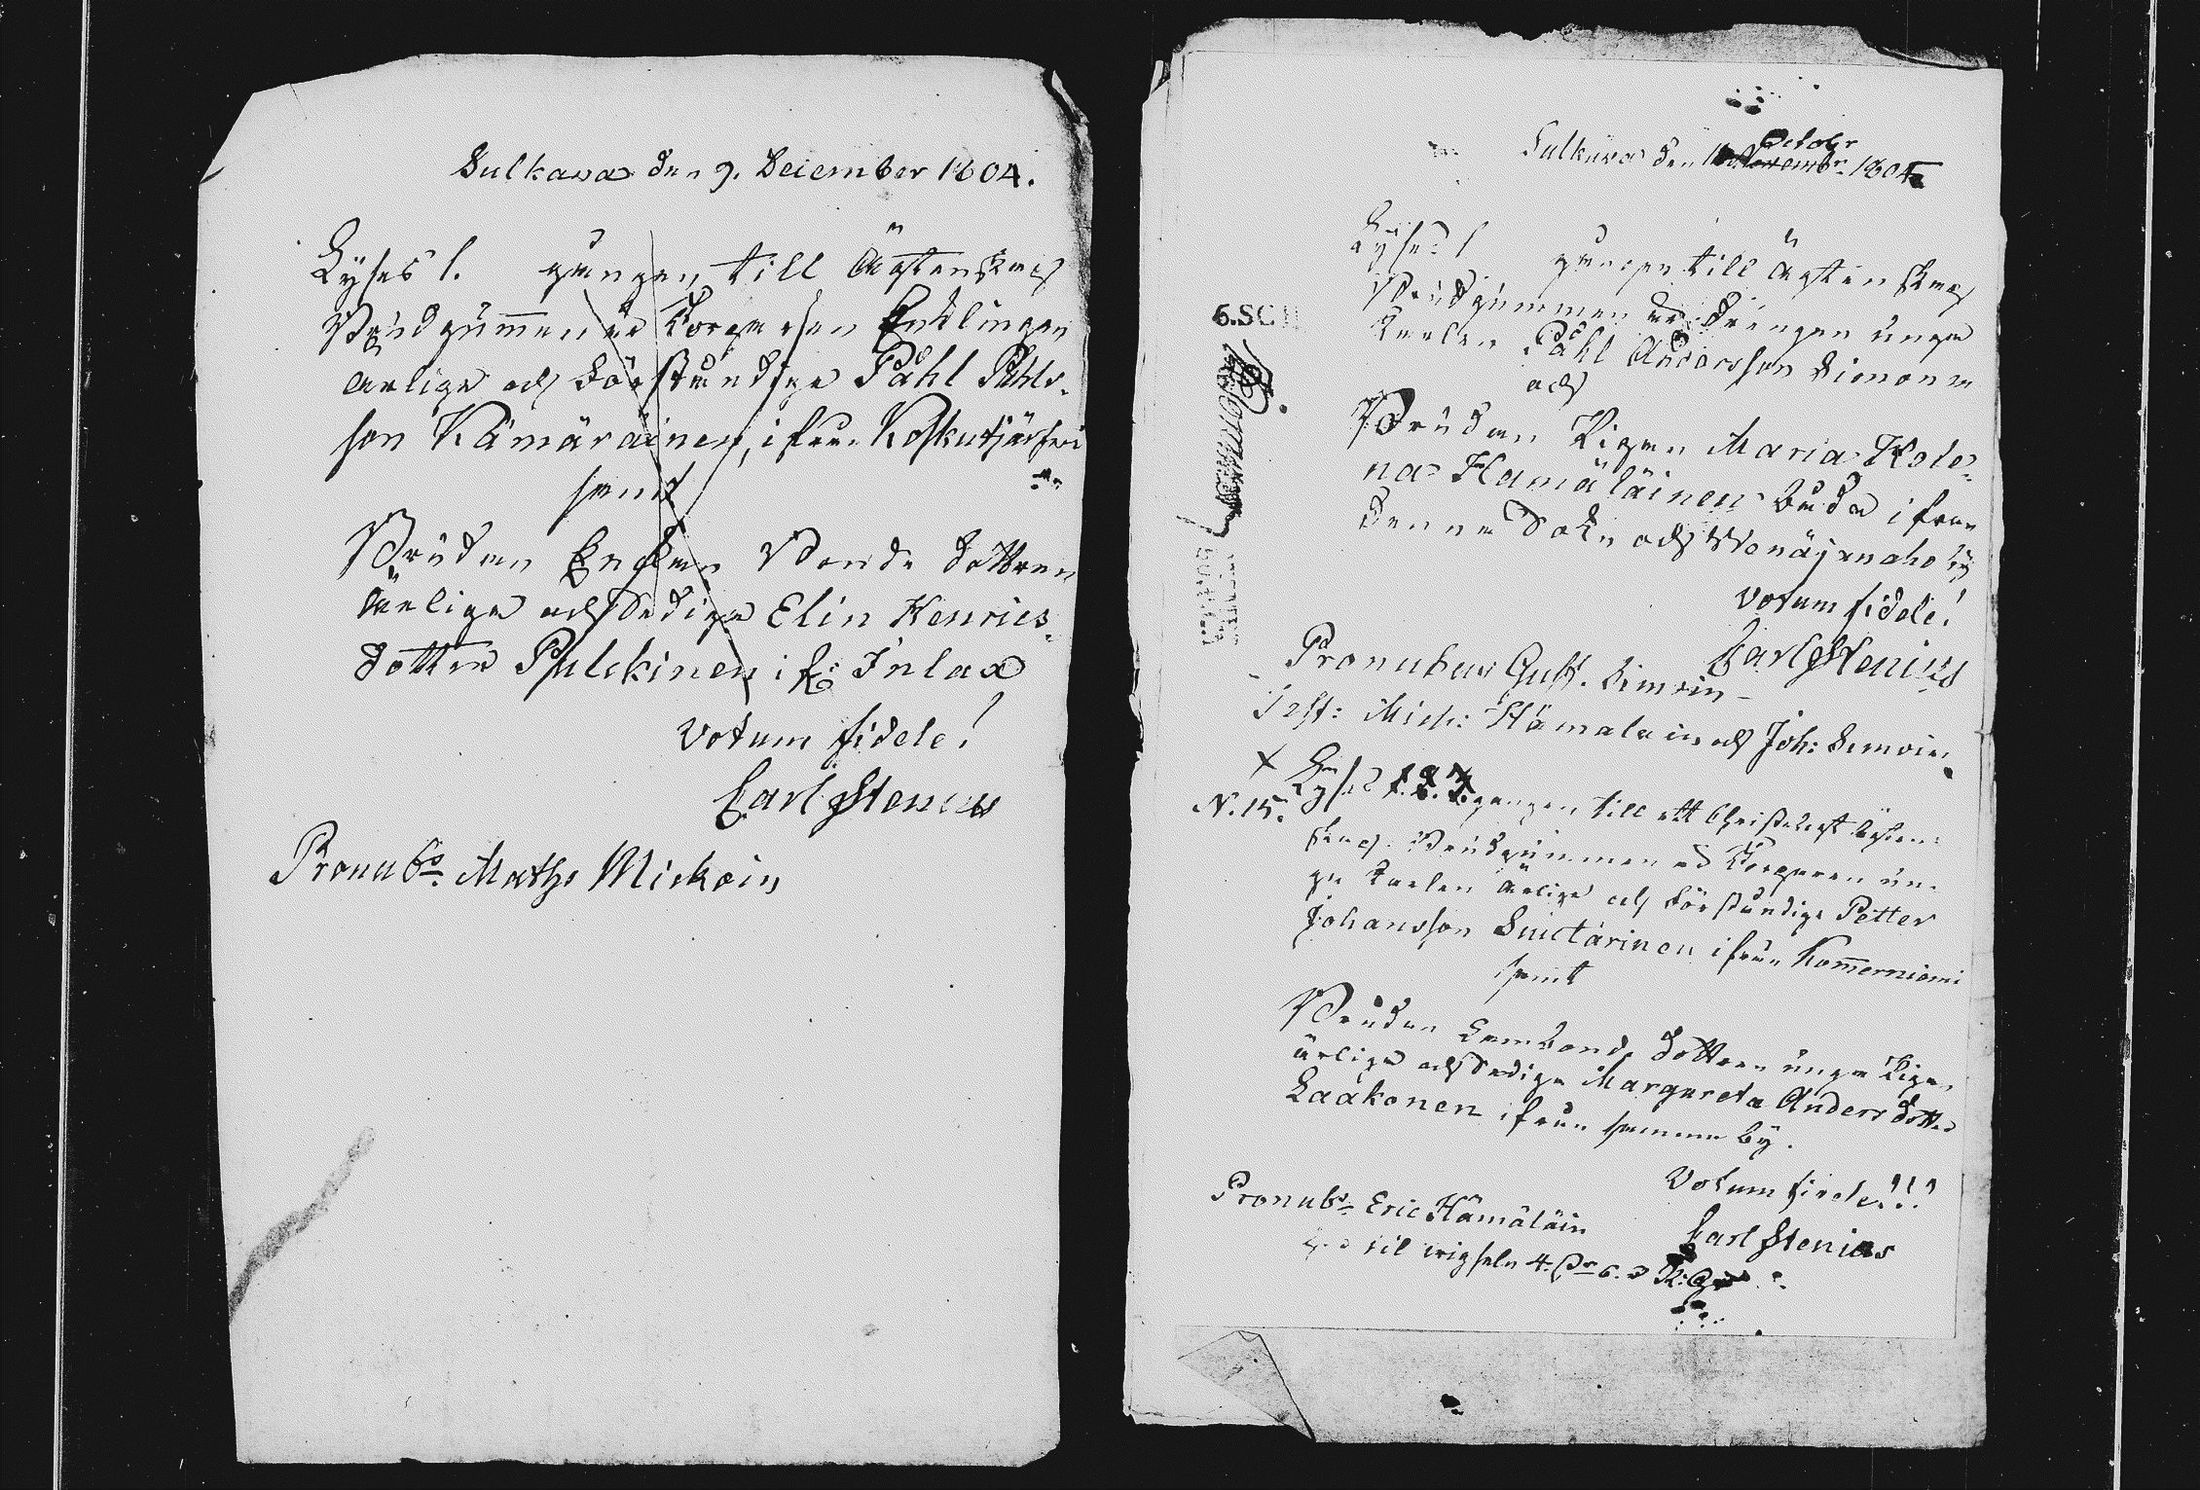 Sulkava den 9. December 1804.
Lyses 1. gången till Ägtenskap
Brudgummen är Torparsen Enklingen
ärlige och förståndige Påhl Påhls-
son Kämäräinen, ifrån Koskutjärfwi
samt
Bruden Enkan Bonde dottren
ärliga och Sediga Elin Henrics
dotter Pulckinen if: Inlax
Votum fidele!
Carl Stenius
Pronubs. Maths Mickoin
October
Sulkava den 11 Novembr. 1804
Lyses 1 gången till Ägtenskap
Brudgummen är drengen unga
Karlen Påhl Andersson Simon
och
Bruden Pigan Maria
na Hamäläinen båda ifrån
denna Sokn och Wenäjenaho by
Votum fidele!
Carl Stenius
Pronubus Gust. Simoin
Test: Mich: Hämalain och Joh: Simoin
6.SC
X Lyses 1. 2. 3. gangen till ett Christeligt Ägten-
N. 15.
skap. Brudgummen är Torparen un-
ga karlen ärlige och förståndige Petter
Johansson Suictarinen ifrån Kommerniemi
samt
Bruden Lambonde dottren unga Pigan
ärliga och Sediga Margareta Anders dotter
Laakonen ifrån samma by.
Votum fidele!!!
Pronubs. Eric Hämäläin
Carl Stenius
til wigseln 4. 6.